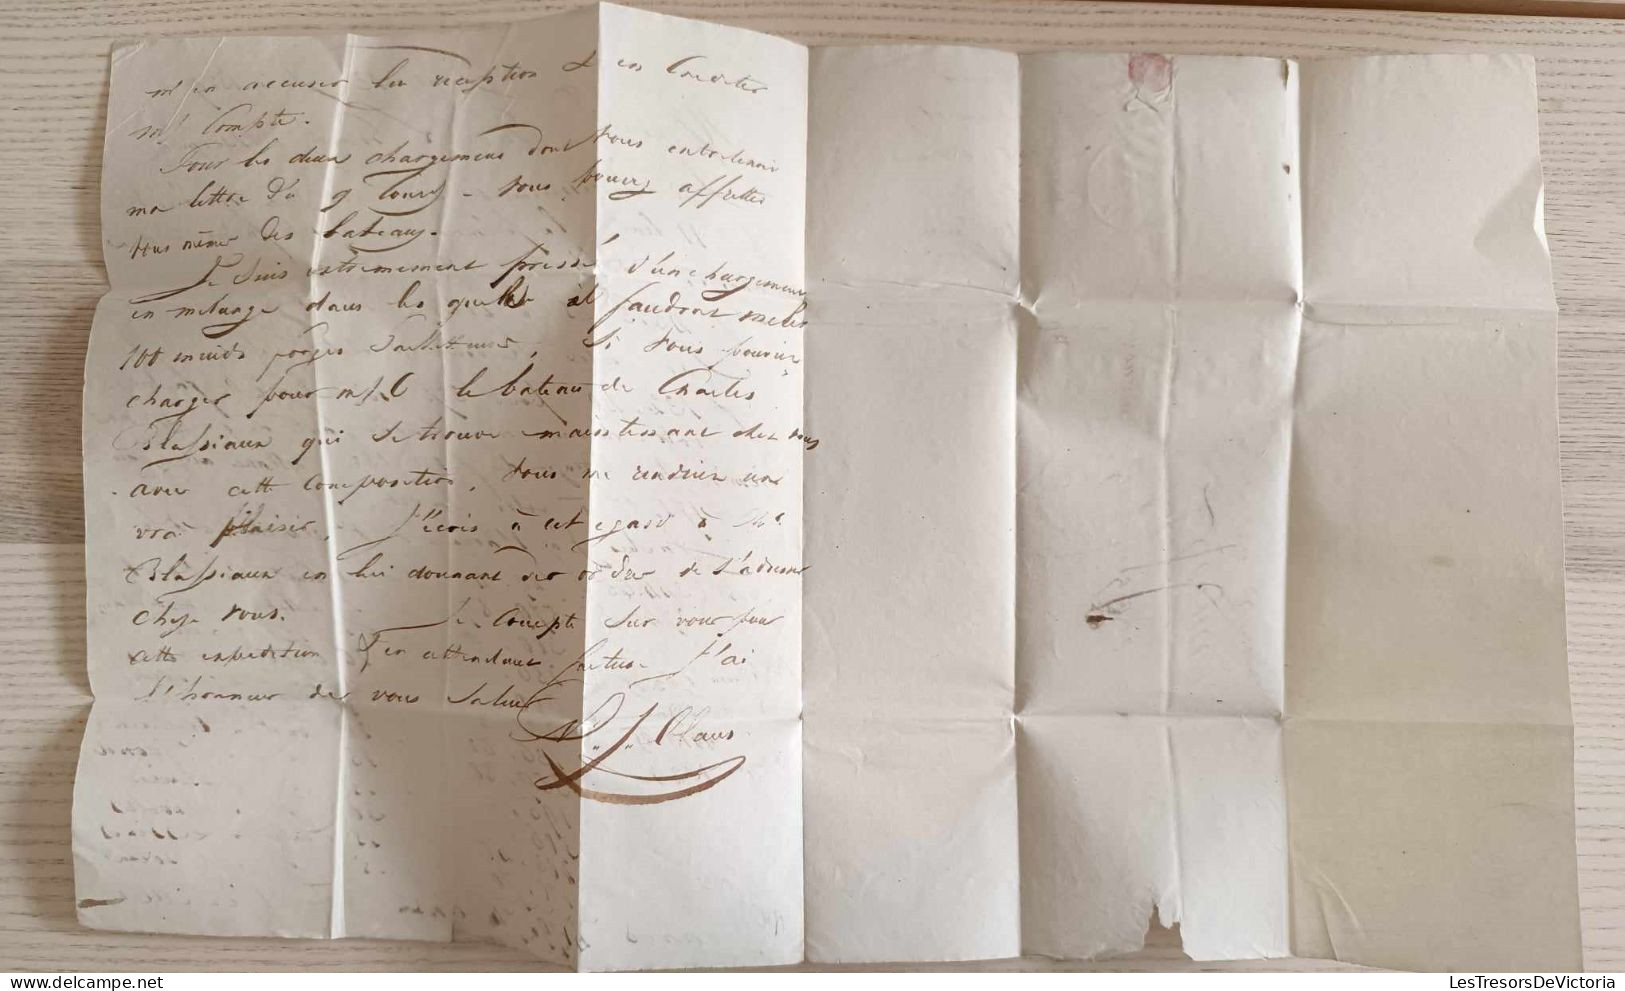 m'en accuser la reception & en Crediter
mt Compte.
Pour les deux chargemens dont vous entretenais
ma lettre du 9 Court - vous pouvez affreter
vous même des bateaux.
Je suis extremement pressé d'un chargement
en melange dans les quelles il faudront mêler
100 muids forges . Si vous pouviez
charger pour m/C le bateau de Charles
Blassiaux qui se trouve maintenant chez vous
avec cette Composition, vous me rendriez un
vrai plaisir, J'écris à cet egard à Mr.
Blassiaux en lui donnant des ordres de s'adresser
chez vous. Je Compte sur vour pour
cette expedition & en attendant facture J'ai
l'honneur de vous saluer
N. J. Claus
LesTresorsDeVictoria